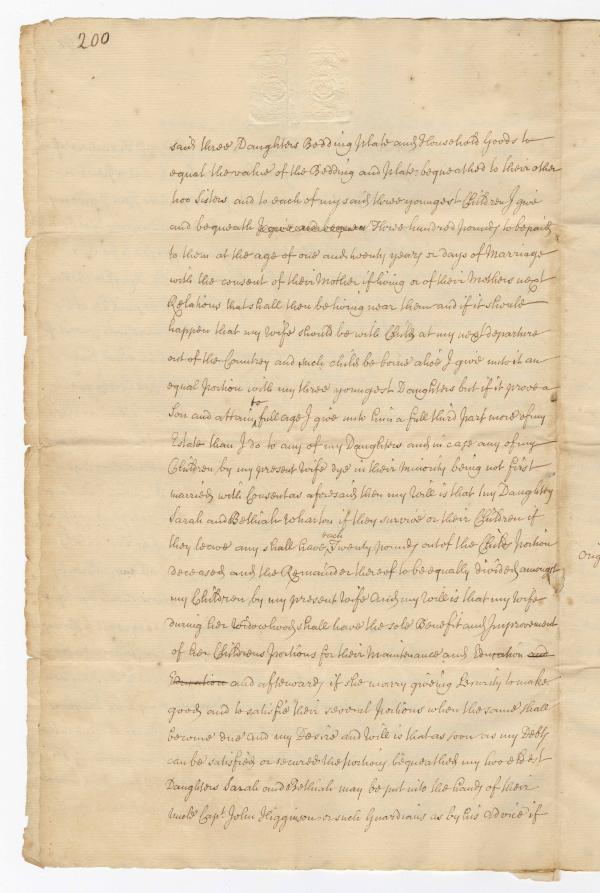 200
said three Daughters Bedding Plate and Household Goods to
equal the value of the Bedding and Plate bequeathed to their other
two Sisters and to each of my said three youngest Children I give
and bequeath I give and bequea Three hundred pounds to be paid
to them at the age of one and twenty years or days of Marriage
with the consent of their Mother if living or of their Mothers next
Relations that shall then be living near them and if it should
happen that my wife should be with Child at my next departure
out of the Countrey and such child be borne alive I give unto it an
equal Portion with my three youngest Daughters but if it prove a
Son and attain to full age I give unto him a full third part more of my
Estate than I do to any of my Daughters and in case any of my
Children by my present Wife dye in their Minority being not first
married with Consent as aforesaid then my Will is that my Daughters
Sarah and Bethiah Wharton if they survive or their Children if
they leave any shall have each Twenty pounds out of the Childs Portion
deceased and the Remainder thereof to be equally divided amongst
my Children by my present Wife And my Will is that my Wife
during her Widowhood shall have the sole Benefit and Improvement
of her Childrens Portions for their Maintenance and Education and
Education and afterwards if she marry giving Security to make
good and to satisfie their several Portions when the same shall
become due and my Desire and Will is that as soon as my Debts
can be satisfied or secured the portions bequeathed my two eldest
Daughters Sarah and Bethiah may be put into the hands of their
Uncle Capt. John Higginson or such Guardians as by his Advice if
Orig